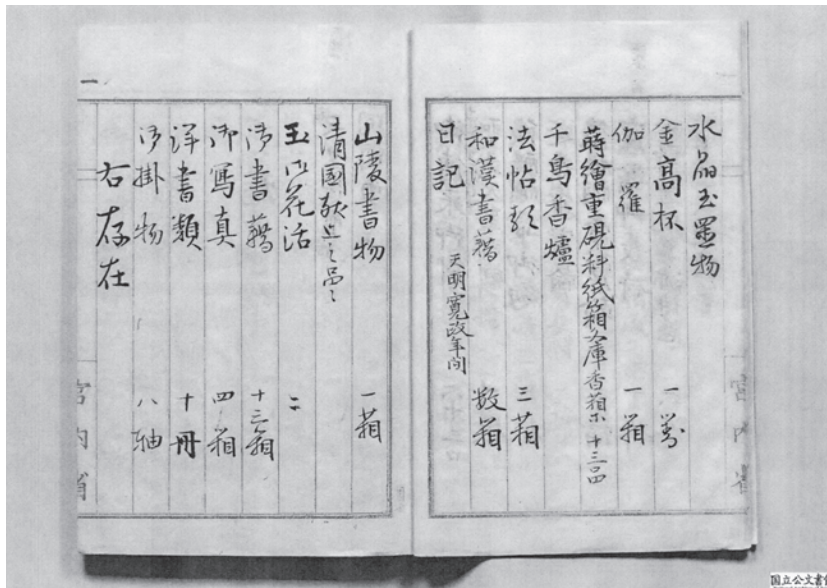 水晶玉置物
金高杯 一対
伽羅 一箱
蒔繪重硯料紙箱文庫香箱等 十三口
千鳥香爐
法帖類 三箱
和漢書籍 数箱
日記 天明寛政年间
山陵書物 一箱
清國献上之品々
玉御花活 二
御書籍 十三箱
御寫真 四箱
洋書類 十冊
御掛物 八軸
右存在
一
宮内省
宮内省
国立公文書